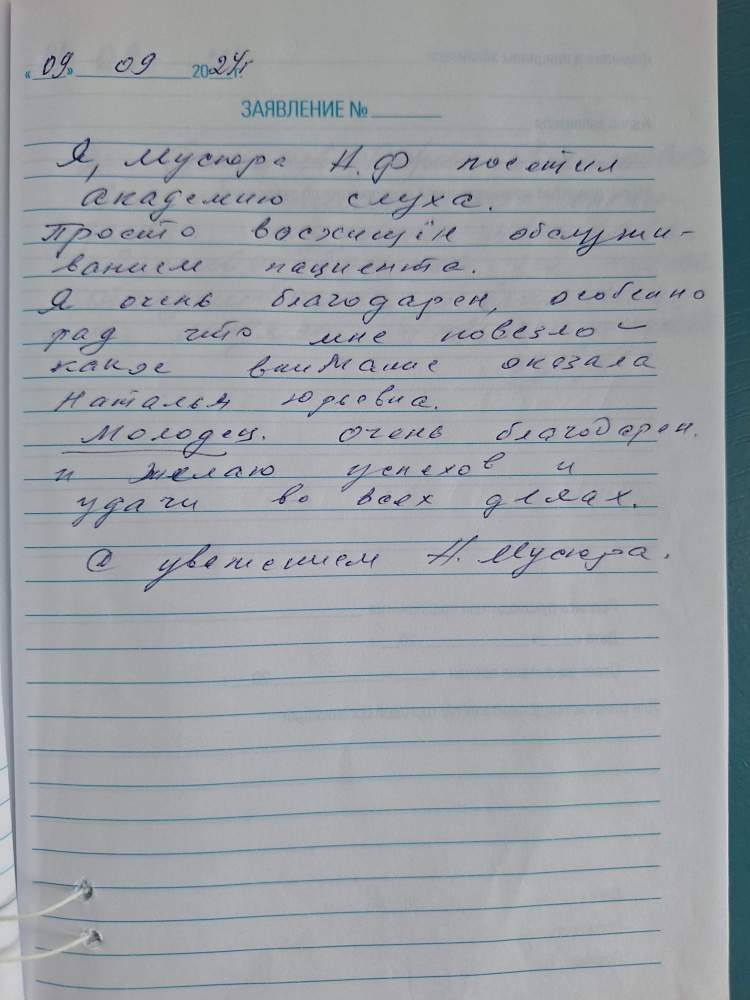 «09» 09 2024г
ЗАЯВЛЕНИЕ №
Я, Мусюра Н.Ф посетил
академию слуха.
Просто восхищён обслужи-
ванием пациента.
Я очень благодарен, особенно
рад что мне повезло –
какое внимание оказала
Наталья Юрьевна.
Молодец. очень благодарен.
и желаю успехов и
удачи во всех делах.
С уважением Н. Мусюра.